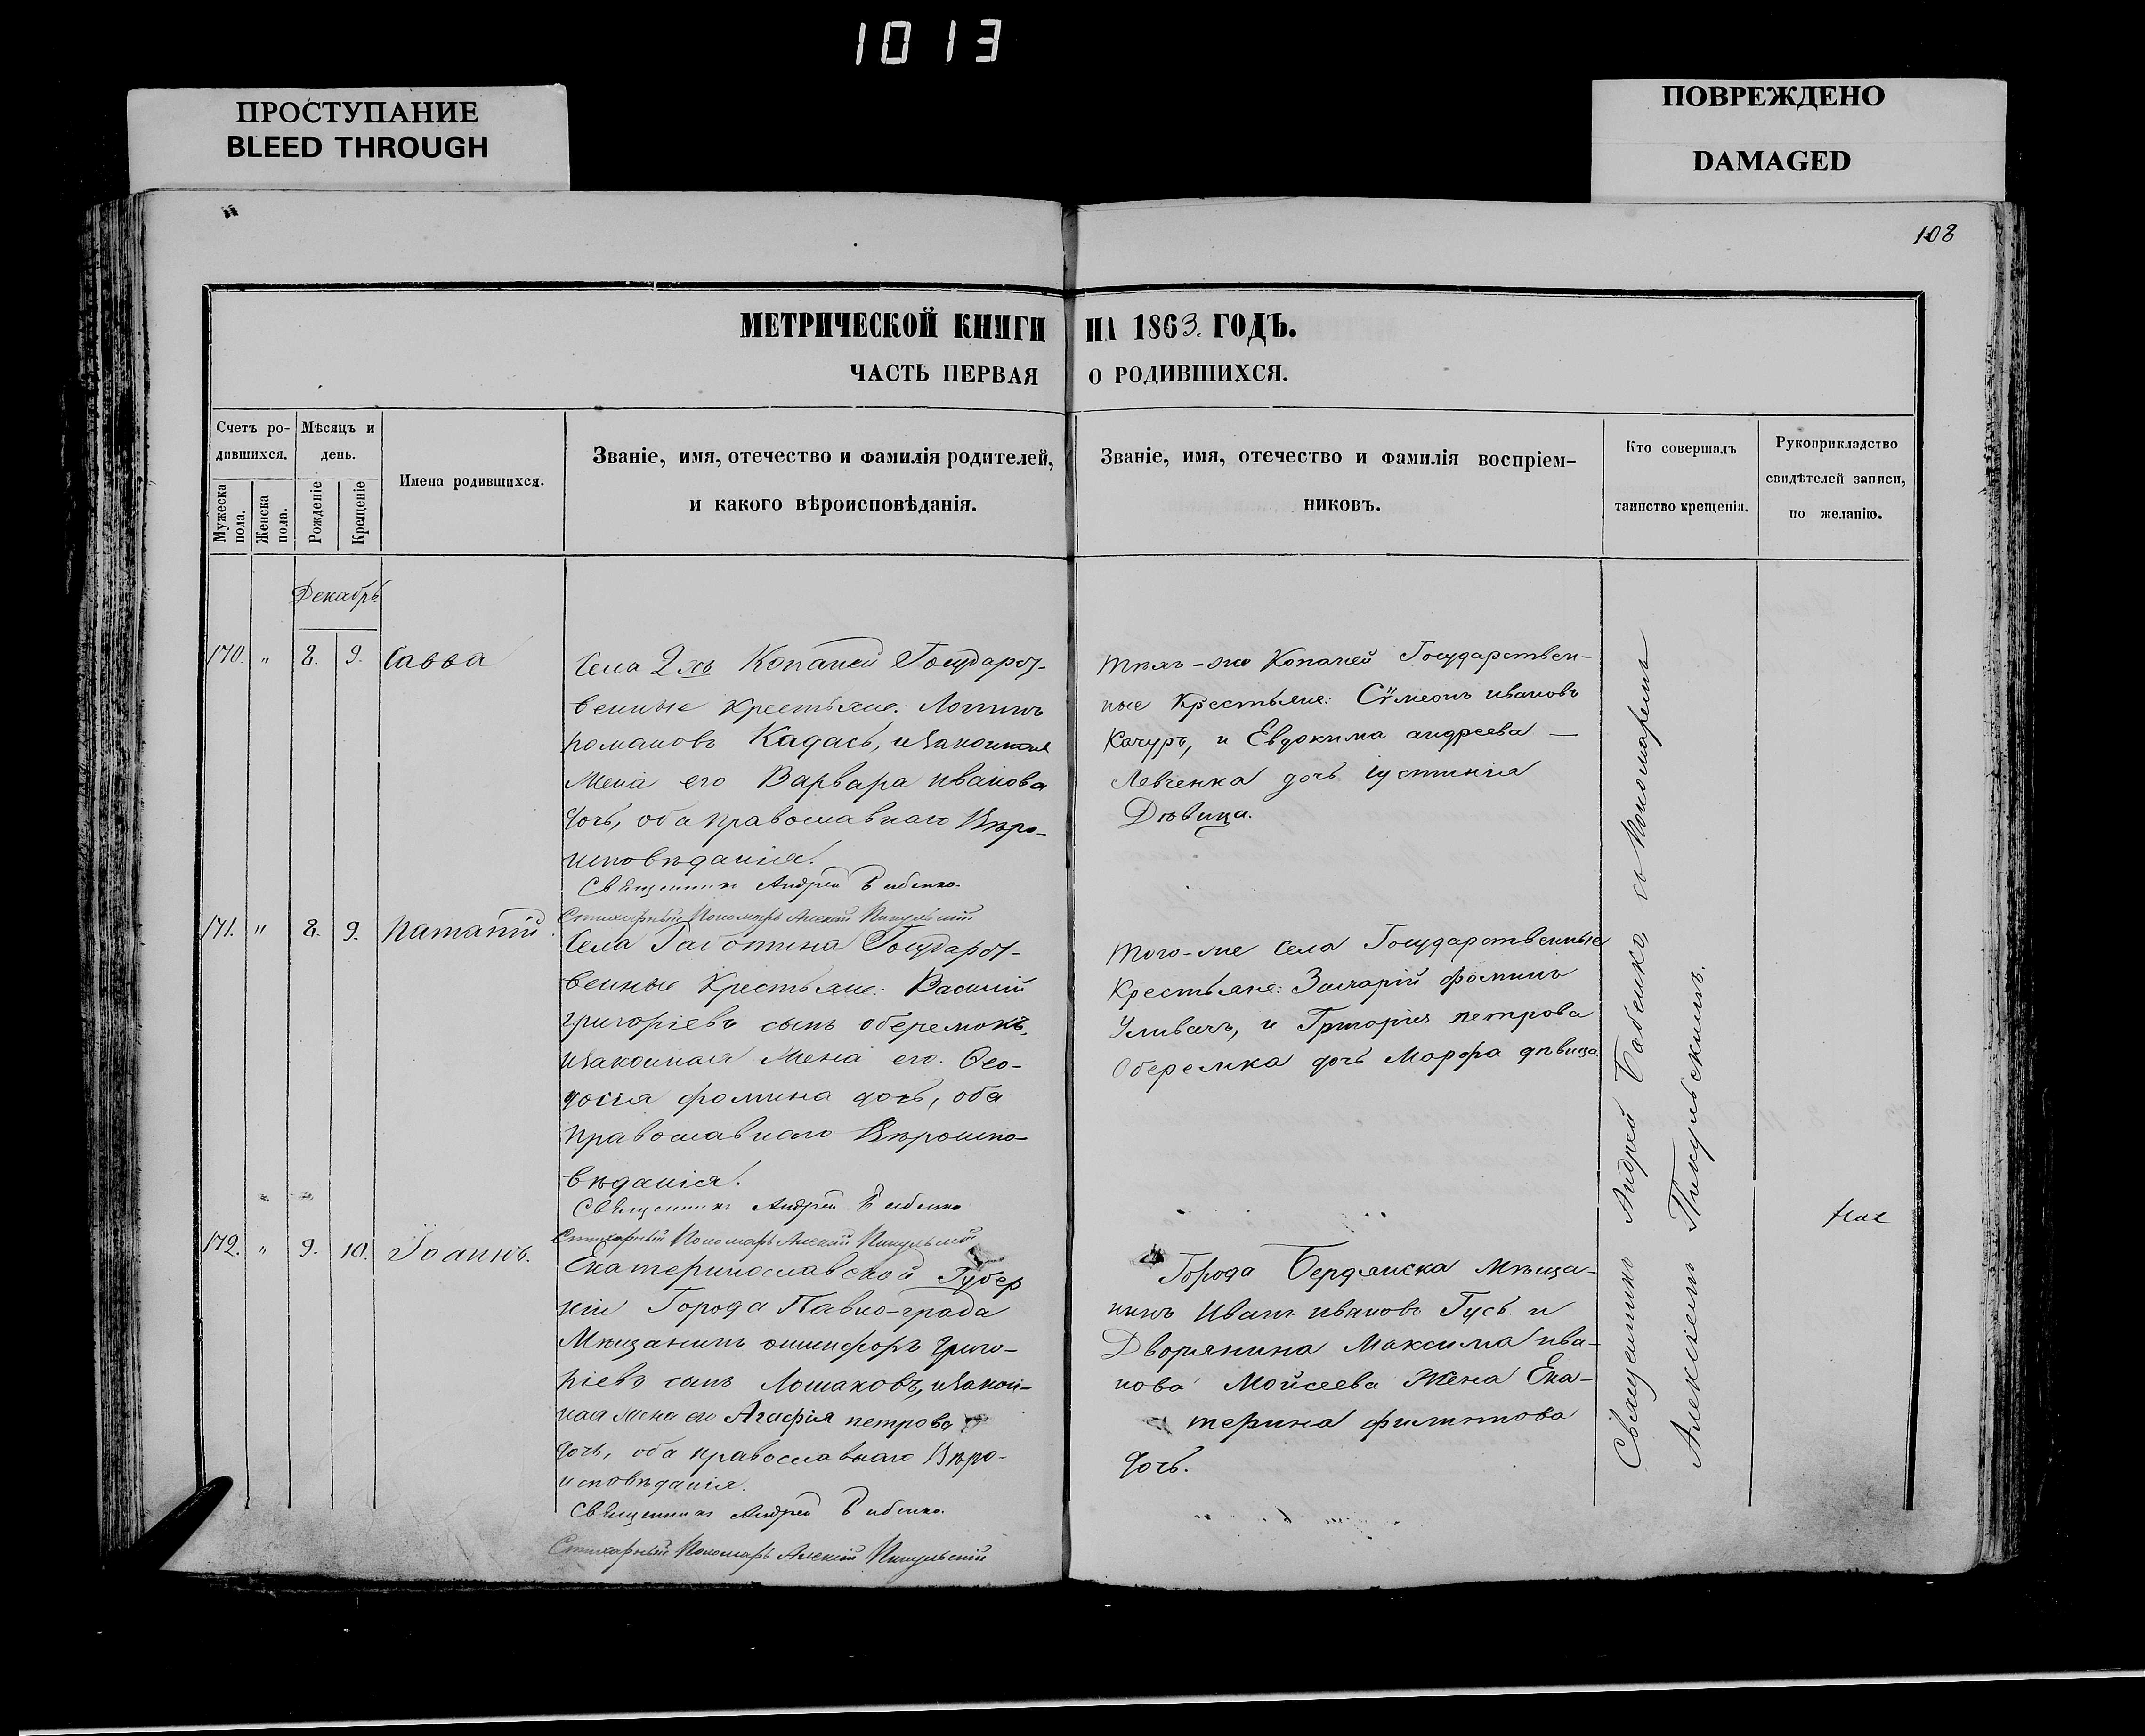 1013
ПРОСТУПАНИЕ
BLEED THROUGH
ПОВРЕЖДЕНО
DAMAGED
108
МЕТРИЧЕСКОЙ КНИГИ НА 1863. ГОДЪ.
ЧАСТЬ ПЕРВАЯ О РОДИВШИХСЯ.
Счетъ ро-
дившихся.
Мужеска пола.
Женска пола.
Мѣсяцъ и
день.
Рожденіе
Крещеніе
Имена родившихся.
Званіе, имя, отечество и фамилія родителей,
и какого вѣроисповѣданія.
Званіе, имя, отечество и фамилія воспріем-
никовъ.
Кто совершалъ
таинство крещенія.
Рукоприкладство
свидѣтелей записи,
по желанію.
Декабрь
170. " 8. 9. Савва
Села 2хъ Копаней Государст-
венные Крестьяне: Логинъ
романовъ Кадась, изаконная
Жена его Варвара иванова
дочь, оба православнаго Вѣро-
исповѣданія.
Священникъ Андрей Бабенко.
Стихарный Пономарь Алексій Пикульскій
Тѣхъ-же Копаней Государствен-
ные Крестьяне: Сѵмеонъ ивановъ
Качуръ, и Евдокима андреева —
Левченка дочь іустинія
Дѣвица.
171. " 8. 9. Патапій.
Села Государст-
венные Крестьяне: Василій
григоріевъ сынъ оберемокъ,
изаконная Жена его. Ѳео-
досія фомина дочь, оба
православнаго Вѣроиспо-
вѣданія.
Священникъ Андрей Бабенко
Стихарный Пономарь Алексій Пикульскій
Того-же Села Государственные
Крестьяне: Захарій фоминъ
Уливачъ, и Григорія петрова
Оберемка дочь Марфа дѣвица
172. " 9. 10. Іоаннъ.
Екатеринославской Губер
ніи Города Павло-града
Мѣщанинъ онисифоръ григо-
ріевъ сынъ Лошаковъ, изакон-
ная жена его Агафія петрова
дочь, оба православнаго Вѣро-
исповѣданія.
Священникъ Андрей Бабенко.
Стихарный Пономарь Алексій Пикульскій
Города Бердянска Мѣща-
нинъ Иванъ ивановъ Гусь. и
Дворянина Максима ива-
нова Мойсеева Жена Ека-
терина филиппова
дочь.
Священникъ Андрей Бабенко, съ Пономаремъ
Алексіемъ Пикульскимъ.